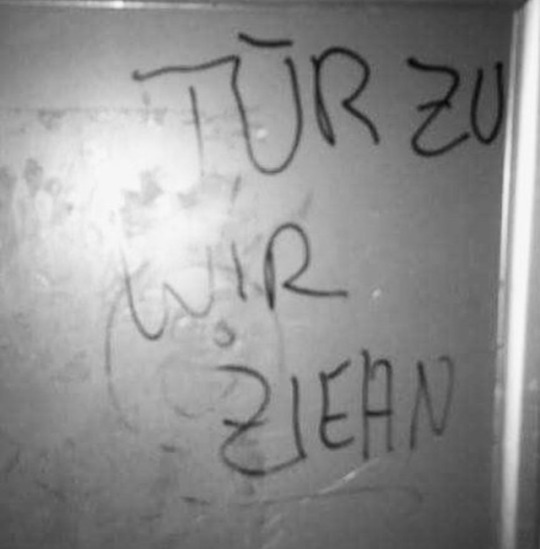 TÜR ZU
WIR
ZIEHN